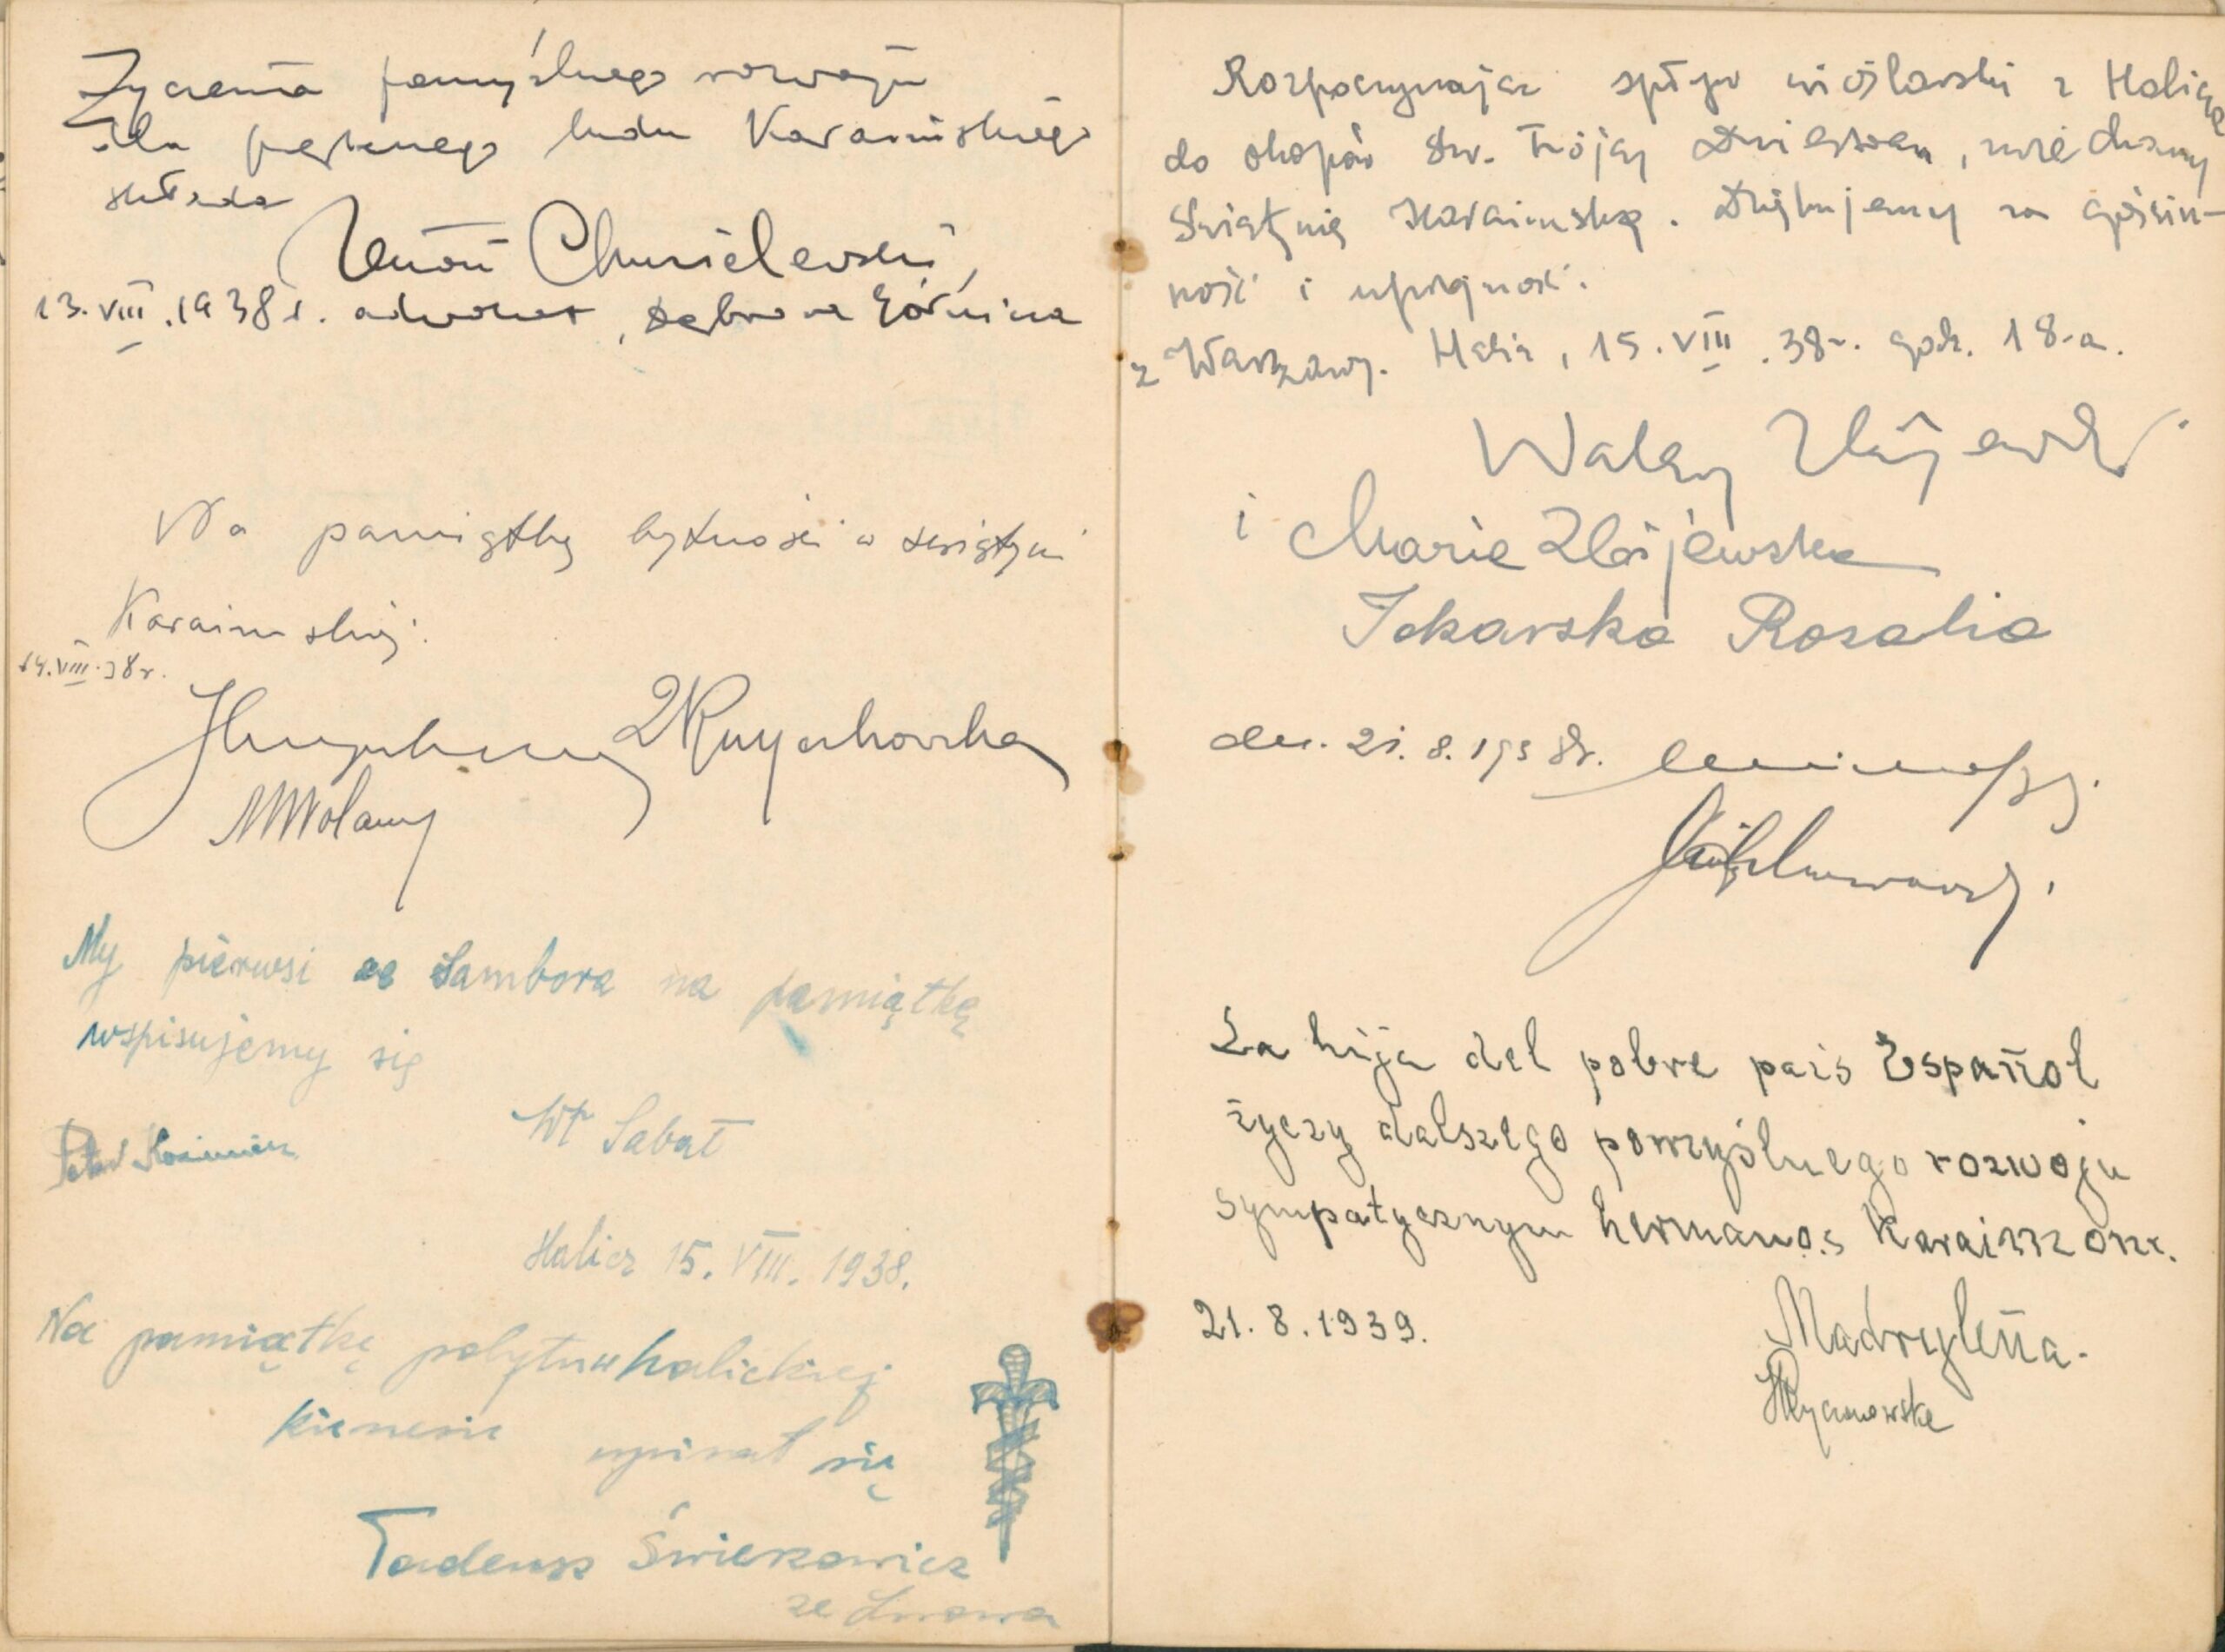 Życzenia pomyślnego rozwoju
dla pięknego ludu Karaimskiego
składa
Chmielewski,
13.VIII.1938 r. adwokat, Dąbrowa Górnicza
Na pamiątkę bytności w świątyni
Karaimskiej.
14.VIII.38r.
MWolany
My pierwsi ze Sambora na pamiątkę
wspisujemy się
Wł Sabat
Halicz 15. VIII. 1938.
Na pamiątkę pobytu w halickiej
kienesie wpisał się
Tadeusz Świerzowicz
ze Lwowa
Rozpoczynając spływ wioślarski z Halicza
do okopów Św. Trójcy Dniestrem,
Świątynię Karaimską. Dziękujemy za gościn-
ność i uprzejmość.
z Warszawy. Halicz, 15.VIII.38r. godz. 18-a.
Walery
i Maria Zbijewska
Rozalia
dn. 21.8.1938r.
La hija del pobre pais Español
życzy dalszego pomyślnego rozwoju
sympatycznym hermanos Karaimom.
21.8.1939. Madryleña.